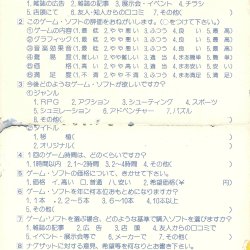 1. 雑誌の広告　2. 雑誌の記事　3. 展示会・イベント　4. チラシ
5. 店頭にて　6. 友人・知人からの口コミ　7. その他(
② このゲーム・ソフトの評価をおねがいします。(○をつけて下さい。)
①ゲームの内容 (1. 最低　2. やや悪い　3. ふつう　4. 良い　5. 最高)
②グラフィック (1. 最低　2. やや悪い　3. ふつう　4. 良い　5. 最高)
③音楽効果音 (1. 最低　2. やや悪い　3. ふつう　4. 良い　5. 最高)
④難易度 (1. 難しい　2. やや難しい　3. 適当　4. まあ簡単　5. 簡単)
⑤価格 (1. 高い　2. やや高い　3. 適当　4. まあ安い　5. 安い)
⑥満足度 (1. 最低　2. やや不満　3. ふつう　4. まあ満足　5. 満足)
③ 今後どのようなゲーム・ソフトが欲しいですか?
①ジャンル
1. RPG　2. アクション　3. シューティング　4. スポーツ
5. シュミレーション　6. アドベンチャー　7. パズル
8. その他(
②タイトル
1. 移植(
2. オリジナル(
④ 1回のゲーム時間は、どのくらいですか?
1. 1時間以内　2. 1～2時間　3. 2～4時間　4. その他(
⑤ ゲーム・ソフトの価格について、きかせて下さい。
価格 イ. 高い　ロ. 普通　ハ. 安い　希望価格(　¥　)
⑥ ゲーム・ソフトを年に何本位おもとめになりますか?
1. 1本　2. 2～5本　3. 6～10本　4. 10本以上
5. その他(
⑦ ゲーム・ソフトを選ぶ場合、どのような基準で購入ソフトを選びますか?
1. 雑誌の記事　2. 広告　3. 店頭　4. 友人からの口コミで
5. イベント・展示会等で　6. メーカーで　7. その他(
⑧ ナグザットに対する意見、希望等を何なりとお書き下さい。